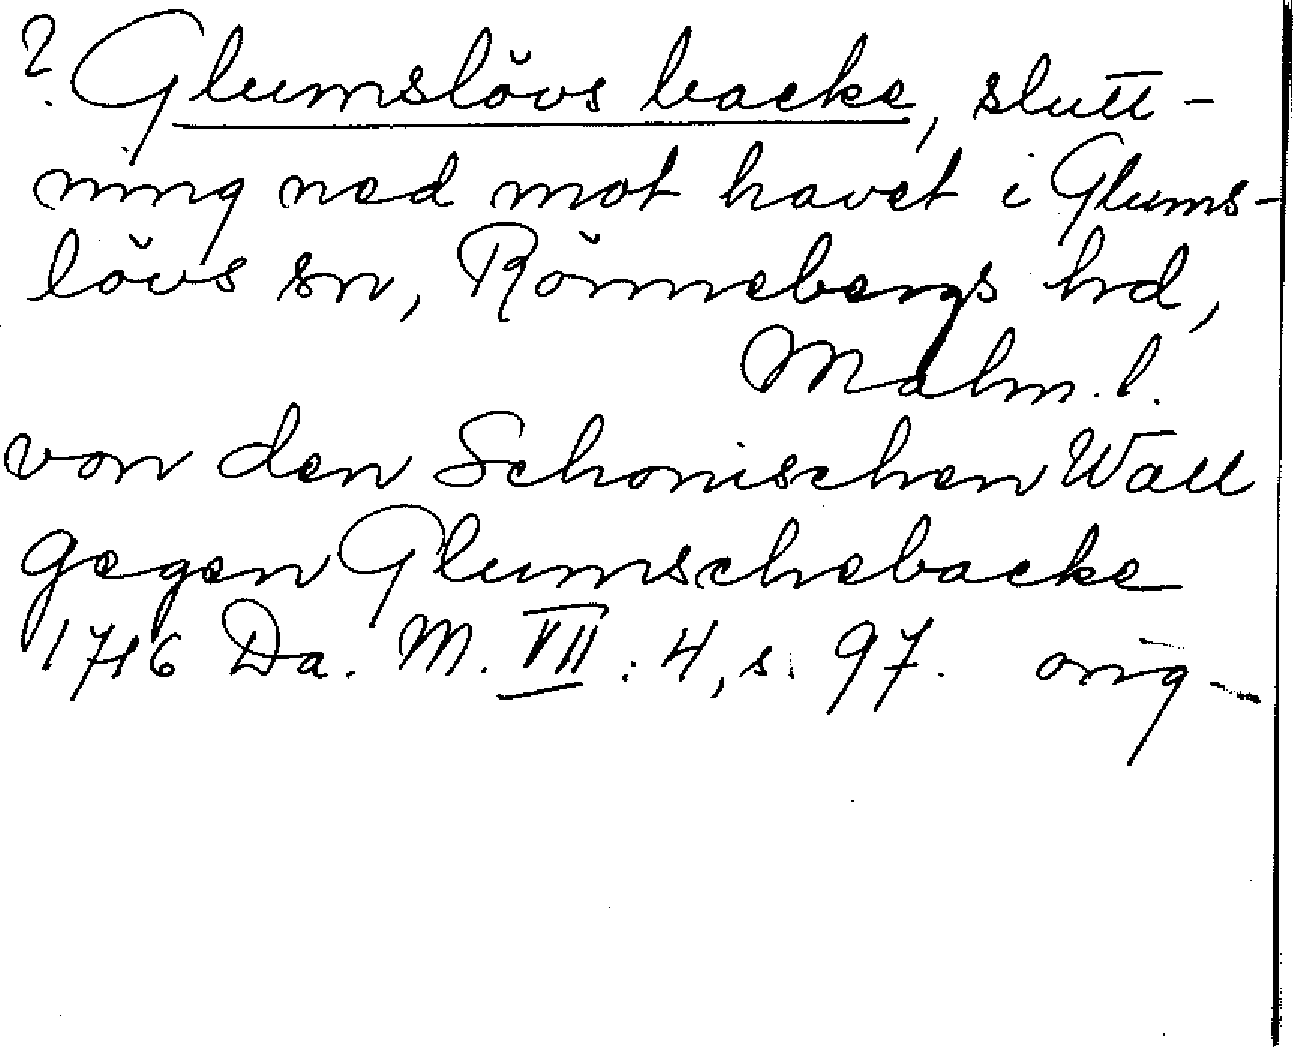 ? Glumslövs backe, slutt-
ning ned mot havet i Glums-
lövs sn, Rönnebergs hd,
Malm. l.
von den Schonischen Wall
gegen Glumschebacke
1716 Da. M. VII : 4, s. 97. orig